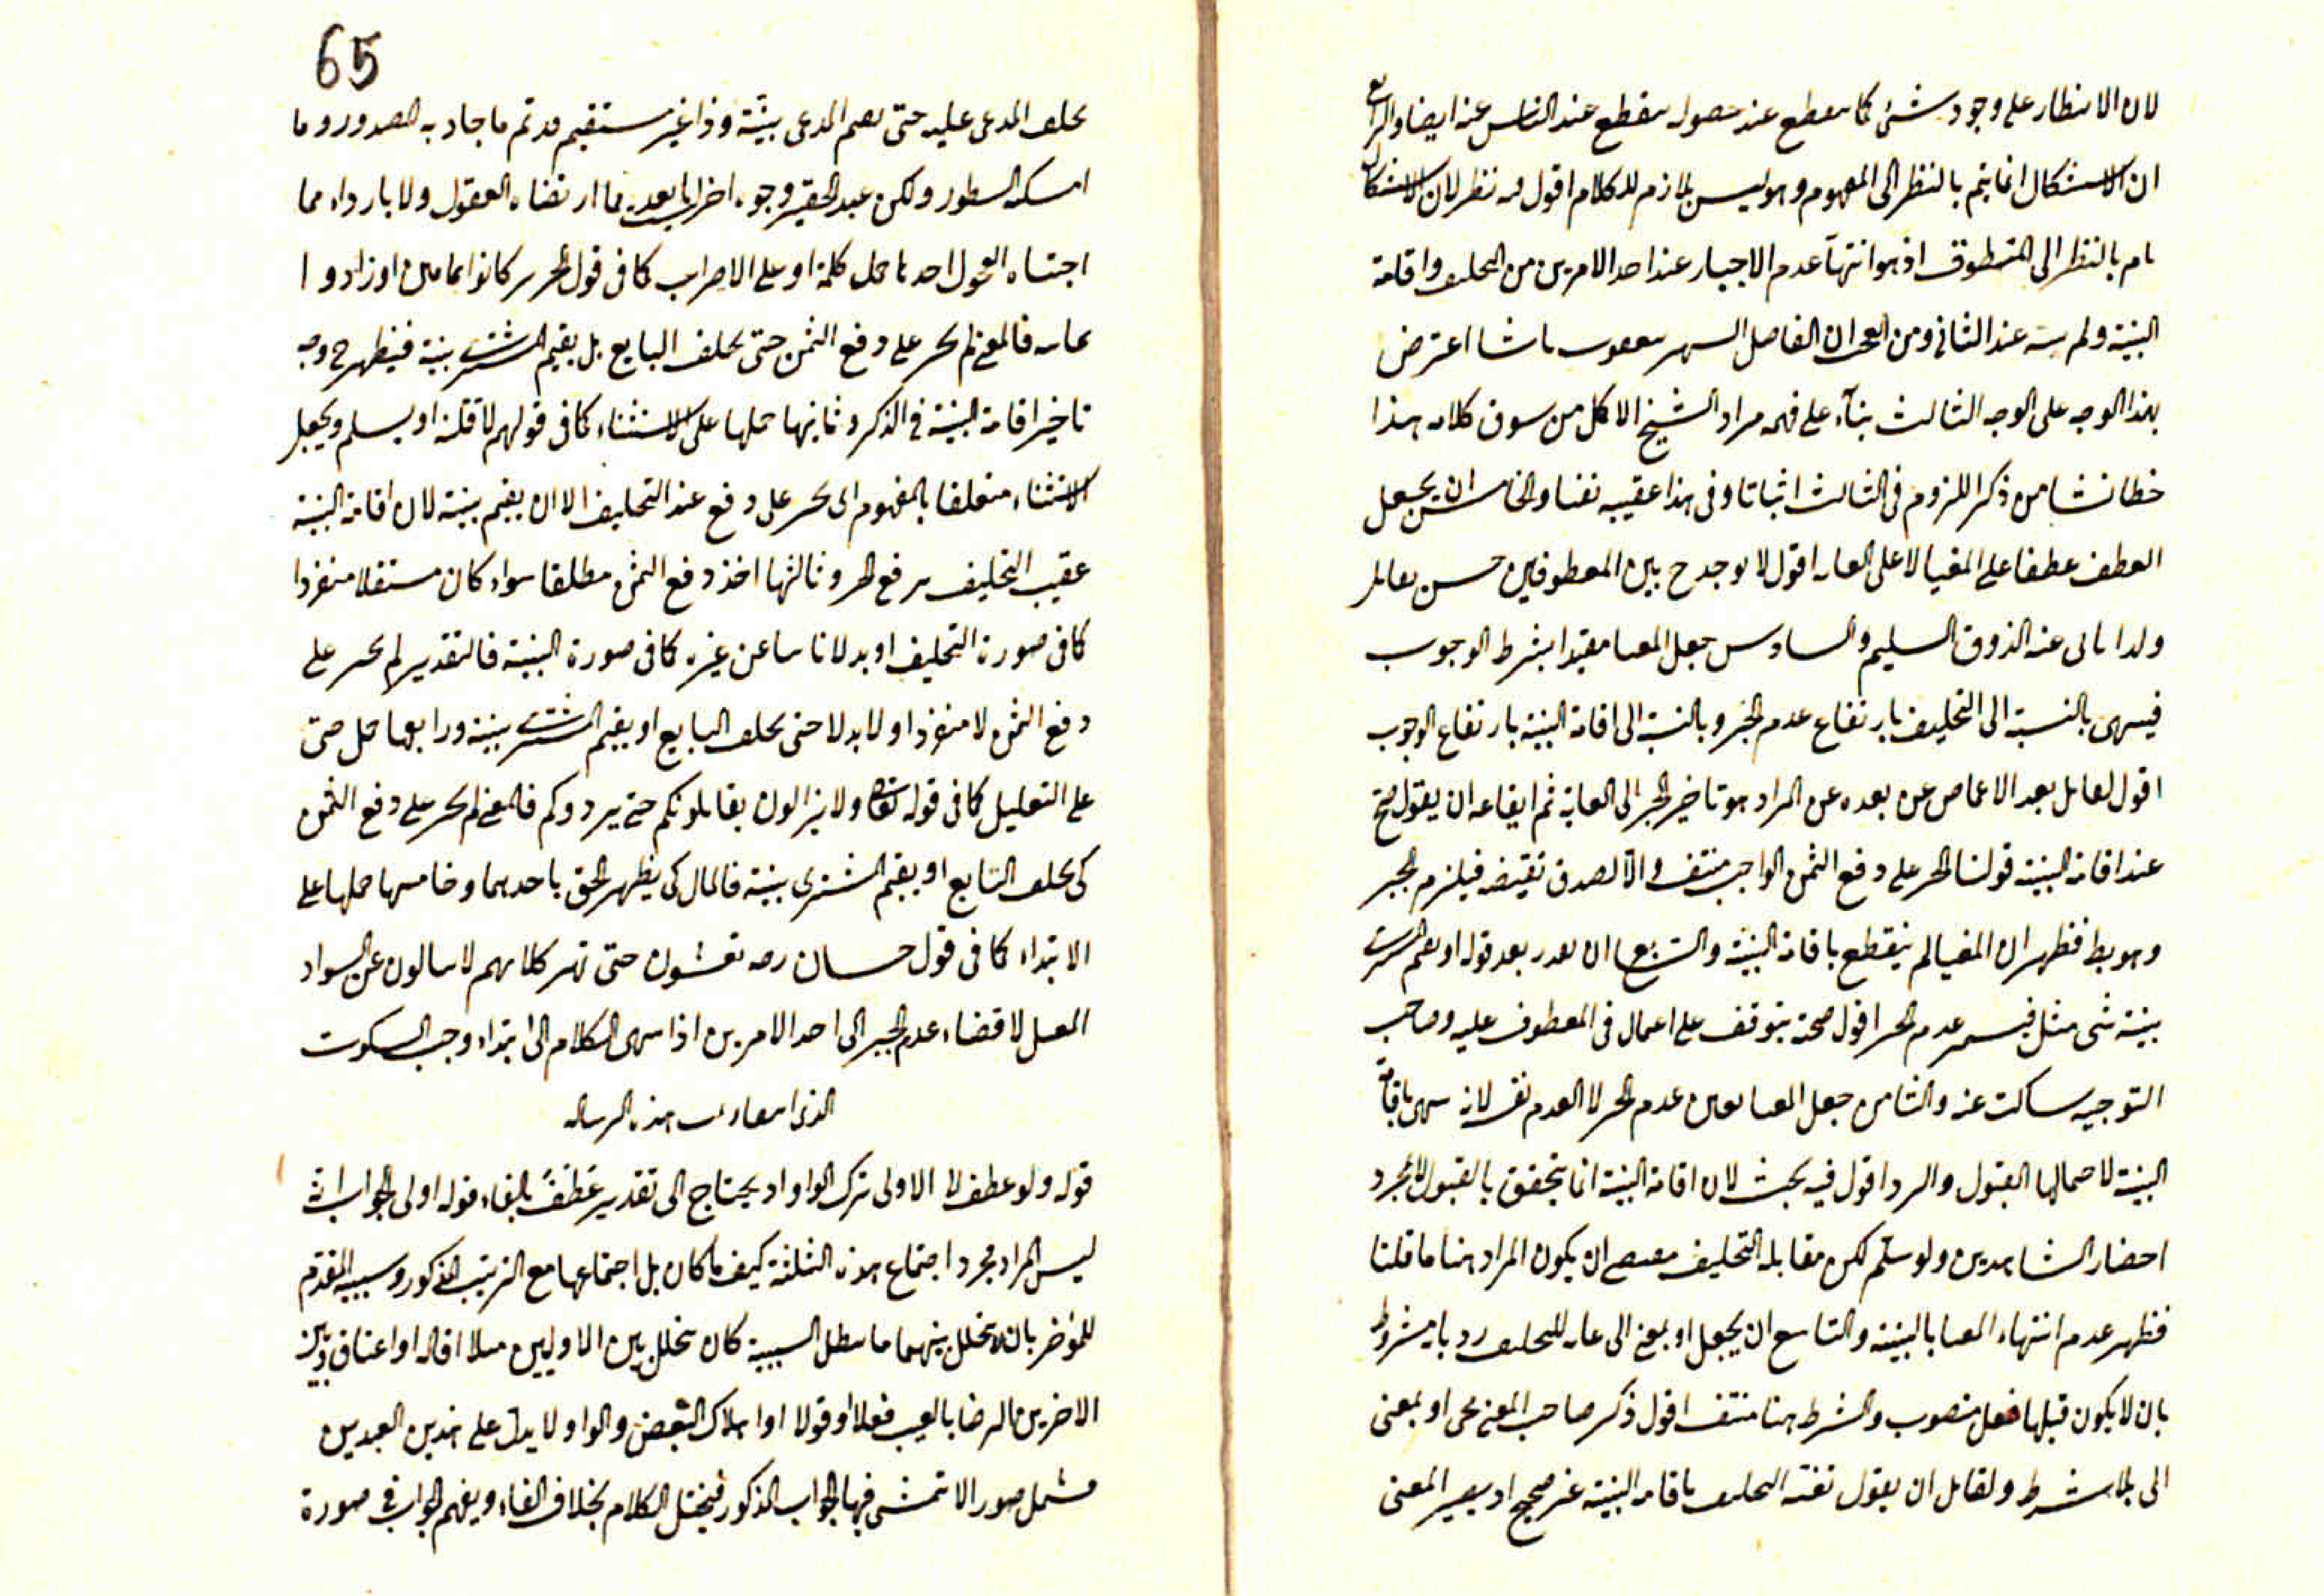 لان الانتظار على وجود شئ كما ينقطع عند حصوله ينقطع عند الناس عنه ايضا والرابع
ان الاستشكال انما يتم بالنظر الى المفهوم وهو ليس بلازم للكلام اقول فيه نظر لان الاستشكال
تام بالنظر الى المنطوق اذ هو انتهآء عدم الاجبار عند احد الامرين من التحليف واقامة
البينة ولم ينته عند الثانى ومن العجب ان الفاضل الشهير بيعقوب باشا اعترض
بهذا الوجه على الوجه الثالث بنآء على فهمه مراد الشيخ الاكمل من سوق كلامه هذا
خطا نشا من ذكر اللزوم فى الثالث اثباتا وفى هذا عقيبه نفيا والخامس ان يجعل
العطف عطفا على المغيا لا على الغاية اقول لا يوجد ح بين المعطوفين حسن تقابل
ولذا يابى عنه الذوق السليم والسادس جعل المغيا مقيدا بشرط الوجوب
فينتهى بالنسبة الى التحليف بارتفاع عدم الجبر وبالنسبة الى اقامة البينة بارتفاع الوجوب
اقول لقائل بعد الاغماض عن بعده عن المراد هو تاخير الجبر الى الغاية ثم ايقاعه ان يقول صح
عند اقامة البينة قولنا الجبر على دفع الثمن الواجب منتف والا لصدق نقيضه فيلزم الجبر
وهو بط فظهر ان المغيا لم ينقطع باقامة البينة والسابع ان يقدر بعد قوله او يقيم المشترى
بينة شئ مثل فيستمر عدم الجبر اقول صحته يتوقف على اعمال فى المعطوف عليه وصاحب
التوجيه ساكت عنه والثامن جعل المغيا تعين عدم الجبر لا العدم نفسه لانه ينتهى باقامة
البينة لاحتمالها القبول والرد اقول فيه بحث لان اقامة البينة انما يتحقق بالقبول لا بمجرد
احضار الشاهدين ولو سلم لكن مقابلة التحليف يقتضى ان يكون المراد هنا ما قلنا
فظهر عدم انتهاء المغيا بالبينة والتاسع ان يجعل او بمعنى الى غاية للتحليف رد بانه مشروط
بان لا يكون قبلها فعل منصوب والشرط هنا منتف اقول ذكر صاحب المغنى مجى او بمعنى
الى بلا شرط ولقائل ان يقول تغية التحليف باقامة البينة غير صحيح اذ يصير المعنى
65
يحلف المدعى عليه حتى يقيم المدعى بينة وذا غير مستقيم قد تم ما جاد به الصدور وما
امسكه السطور ولكن عبد الحقير وجوه اخر لا يبعد مما ارتضاه العقول ولا بارداء مما
اجتباه الفحول احدها حمل كلمة او على الاضراب كما فى قول جرير كانوا ثمانين او زادوا
ثمانية فالمعنى لم يجبر على دفع الثمن حتى يحلف البايع بل يقيم المشترى بينة فيظهر ح وجه
تاخير اقامة البينة فى الذكر وثانيها حملها على الاستثناء كما فى قولهم لاقتلنه او يسلم ويجعل
الاستثناء متعلقا بالمفهوم اى يجبر على دفع عند التحليف الا ان يقيم بينة لان اقامة البينة
عقيب التحليف يرفع الجبر وثالثها اخذ دفع الثمن مطلقا سواء كان مستقلا منفردا
كما فى صورة التحليف او بدلا ناشيا عن غيره كما فى صورة البينة فالتقدير لم يجبر على
دفع الثمن لا منفردا ولا بدلا حتى يحلف البايع او يقيم المشترى بينة ورابعها حمل حتى
على التعليل كما فى قوله تعالى ولا يزالون يقاتلونكم حتى يردوكم فالمعنى لم يجبر على دفع الثمن
كى يحلف البايع او يقيم المشترى بينة فالمال كى يظهر الحق باحدهما وخامسها حملها على
الابتداء كما فى قول حسان رضه يغشون حتى تهر كلابهم لا يسالون عن السواد
المقبل لاقضاء عدم الجبر الى احد الامرين اذا انتهى الكلام الى ابتداء وجب السكوت
هذه الرسالة
قوله ولو عطف لا الاولى ترك الواو اذ يحتاج الى تقدير عطف بالفاء قوله اولى الجواب انه
ليس المراد مجرد اجتماع هذه الثلثة كيف ما كان بل اجتماعها مع الترتيب المذكور وسببية المتقدم
للمؤخر بان لا يتخلل بينهما ما يبطل السببية كان يتخلل بين الاوليين مثلا اقالة او اعتاق وبين
الاخرين الرضا بالعيب فعلا او قولا او اهلاك البعض والواو لا يدل على هذين القيدين
فيشمل صورا لا يتمشى فيها الجواب المذكور فيختل الكلام بخلاف الفاء ويفهم الجواب فى صورة